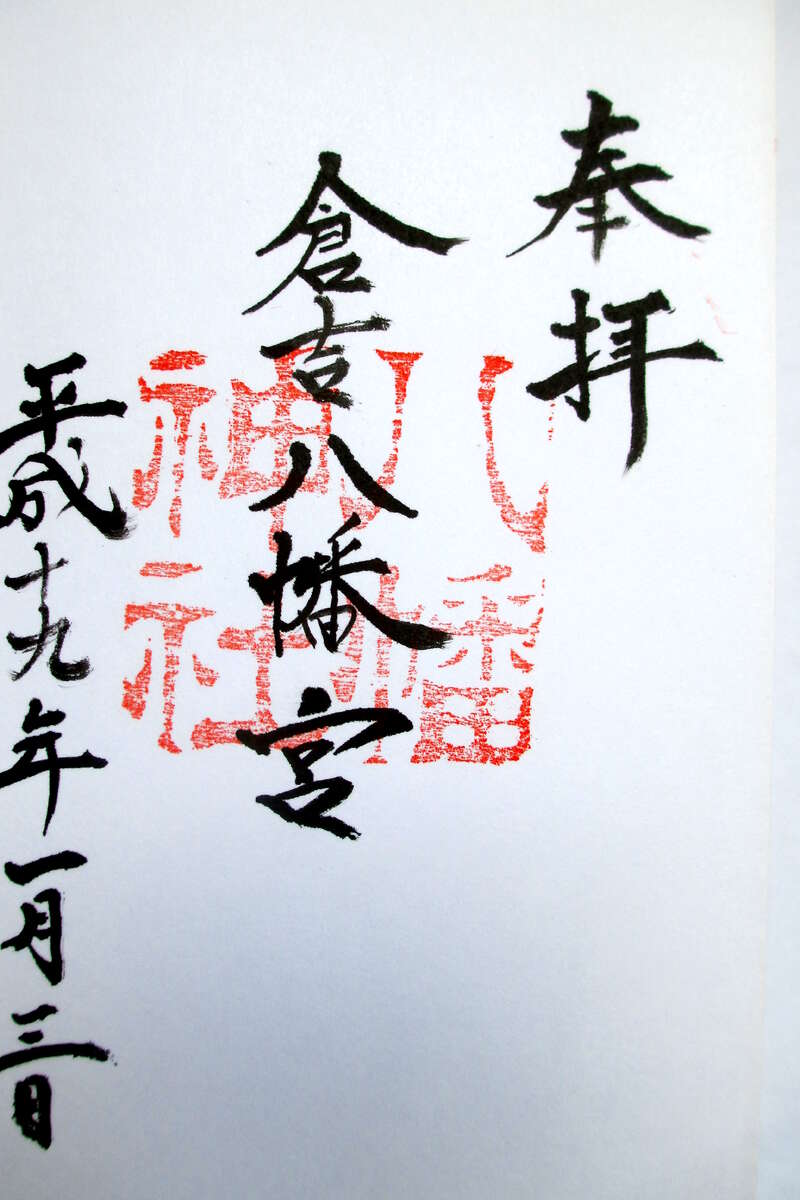 奉拝
倉吉八幡宮
八幡
神社
平成十九年一月三日